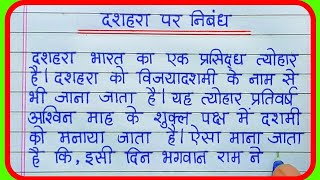 दशहरा पर निबंध
दशहरा भारत का एक प्रसिद्ध त्योहार
है। दशहरा को विजयादशमी के नाम से
भी जाना जाता है। यह त्योहार प्रतिवर्ष
अश्विन माह के शुक्ल पक्ष में दशमी
को मनाया जाता है। ऐसा माना जाता
है कि, इसी दिन भगवान राम ने